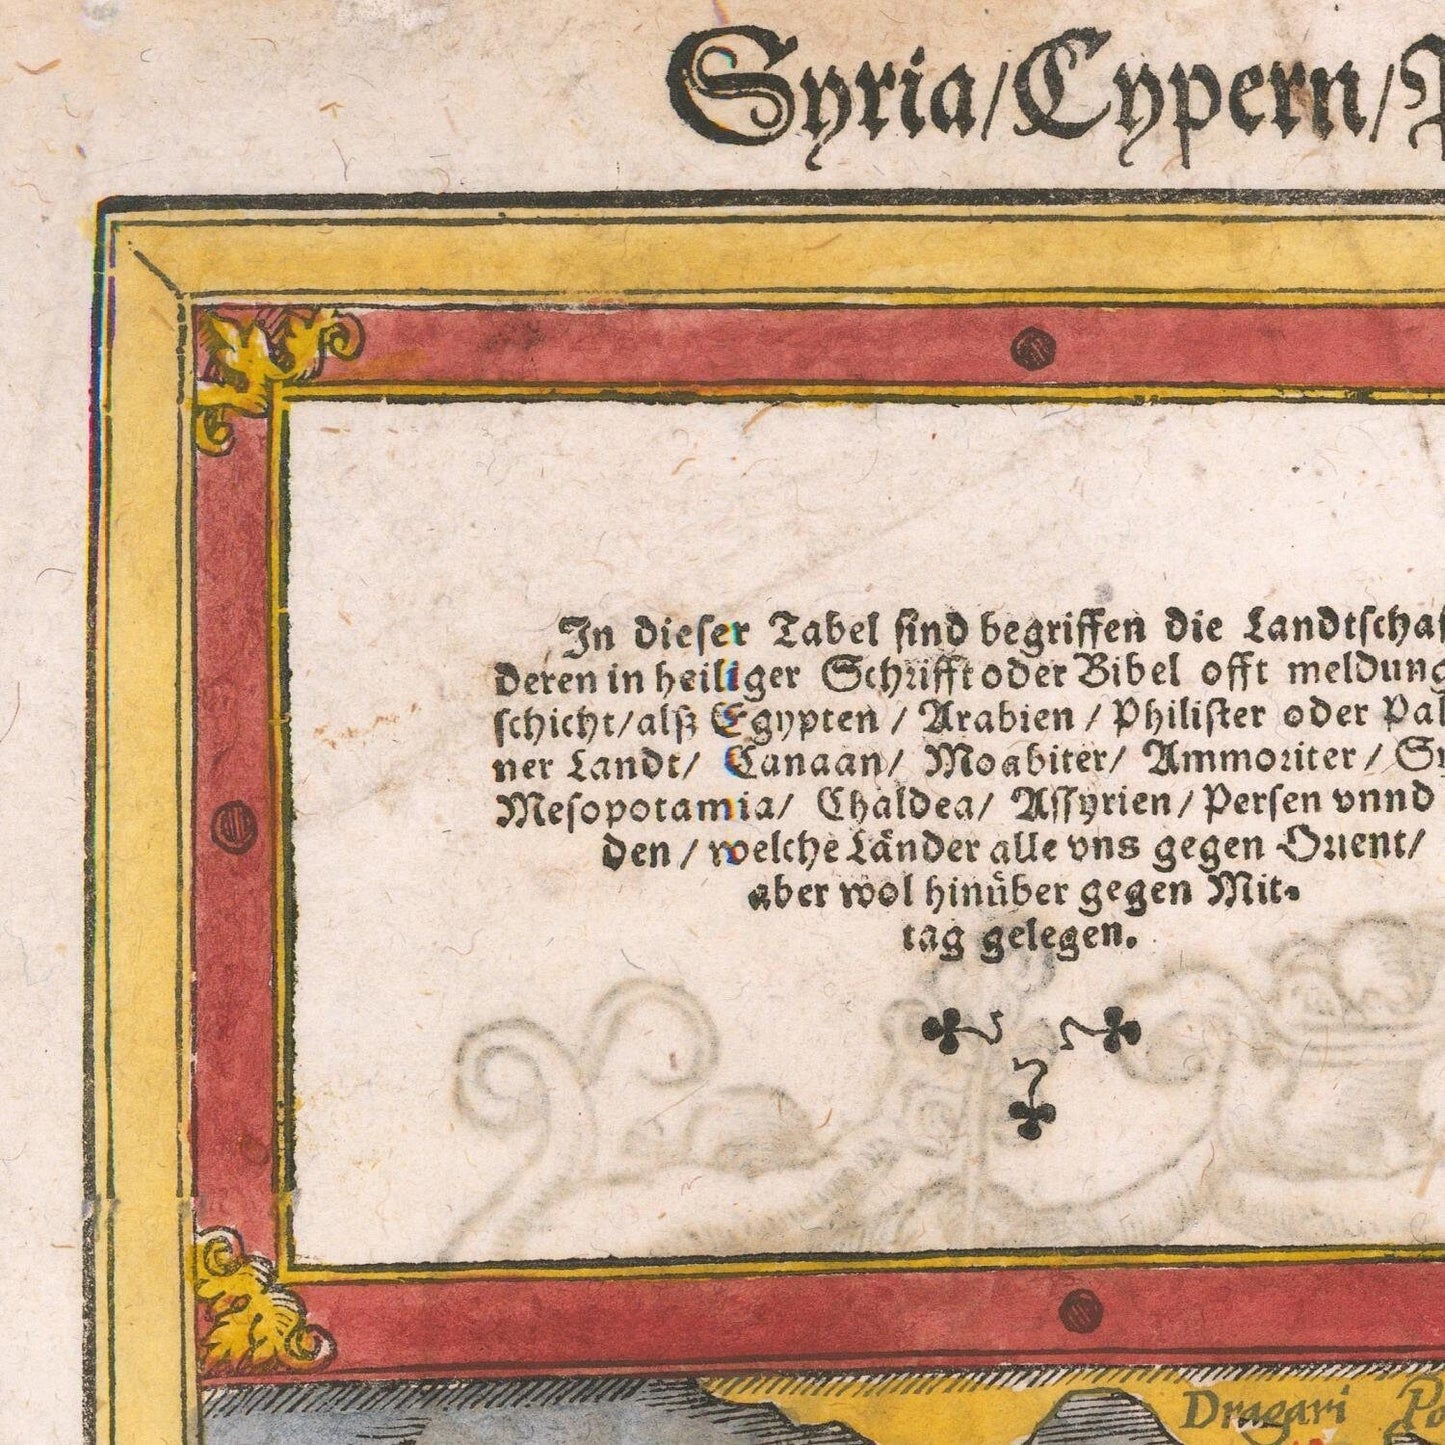 Syria/Cypern/
In dieser Tabel sind begriffen die Landtscha
deren in heiliger Schrifft oder Bibel offt meldung
schicht/alß Egypten / Arabien / Philister oder Pal
ner Landt/ Canaan/ Moabiter/ Ammoriter / Sy
Mesopotamia/ Chaldea/ Assyrien / Persen vnnd
den / welche Länder alle vns gegen Orient/
aber wol hinüber gegen Mit-
tag gelegen.
Dragari